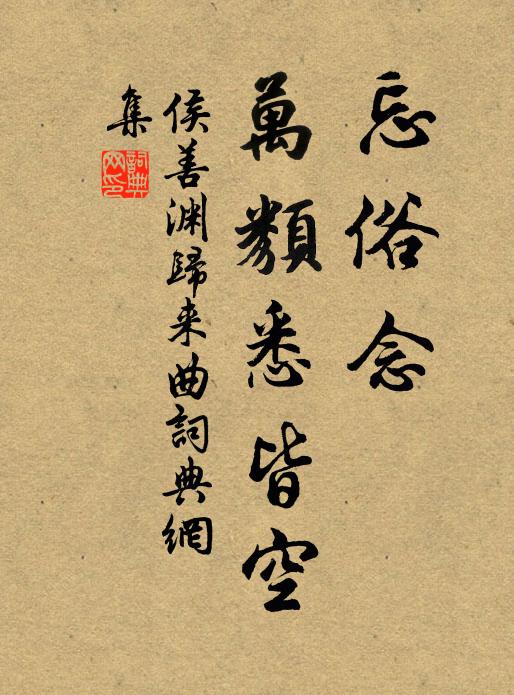 忘俗念
萬類悉皆空
侯善渊歸来曲詞典網
集
詞典网印